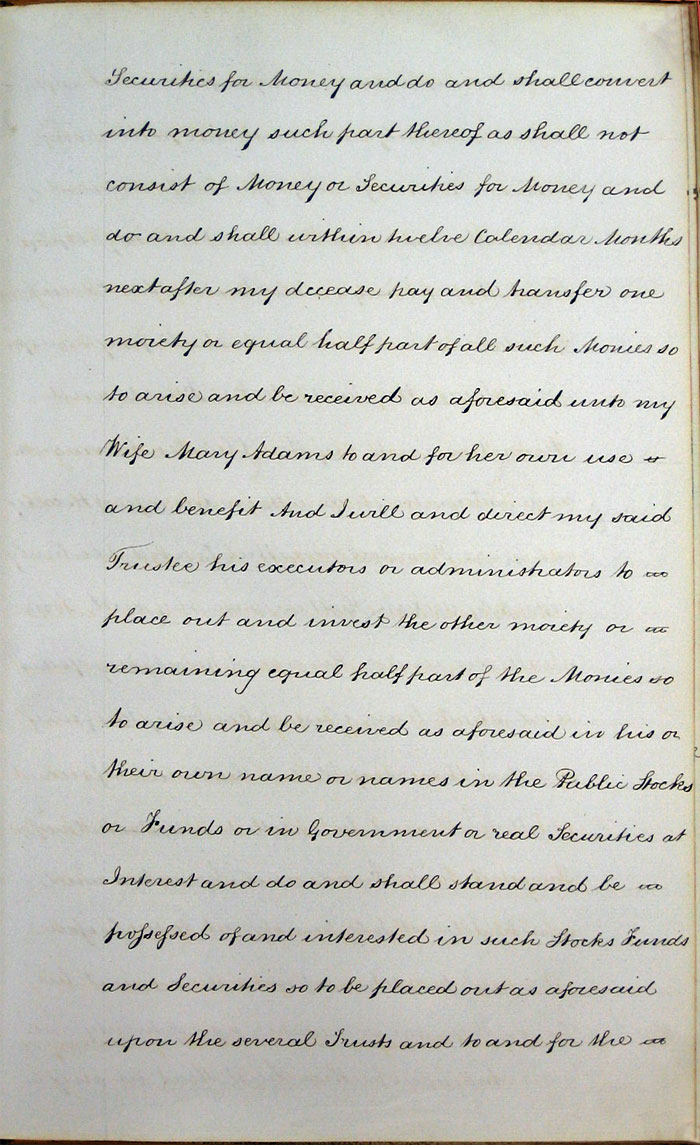 Securities for Money and do and shall convert
into money such part thereof as shall not
consist of Money or Securities for Money and
do and shall within twelve Calendar Months
next after my decease pay and transfer one
moiety or equal half part of all such Monies so
to arise and be received as aforesaid unto my
Wife Mary Adams to and for her own use
and benefit And I will and direct my said
Trustee his executors or administrators to
place out and invest the other moiety or
remaining equal half part of the Monies so
to arise and be received as aforesaid in his or
their own name or names in the Public Stocks
or Funds or in Government or real Securities at
Interest and do and shall stand and be
possessed of and interested in such Stocks Funds
and Securities so to be placed out as aforesaid
upon the several Trusts and to and for the